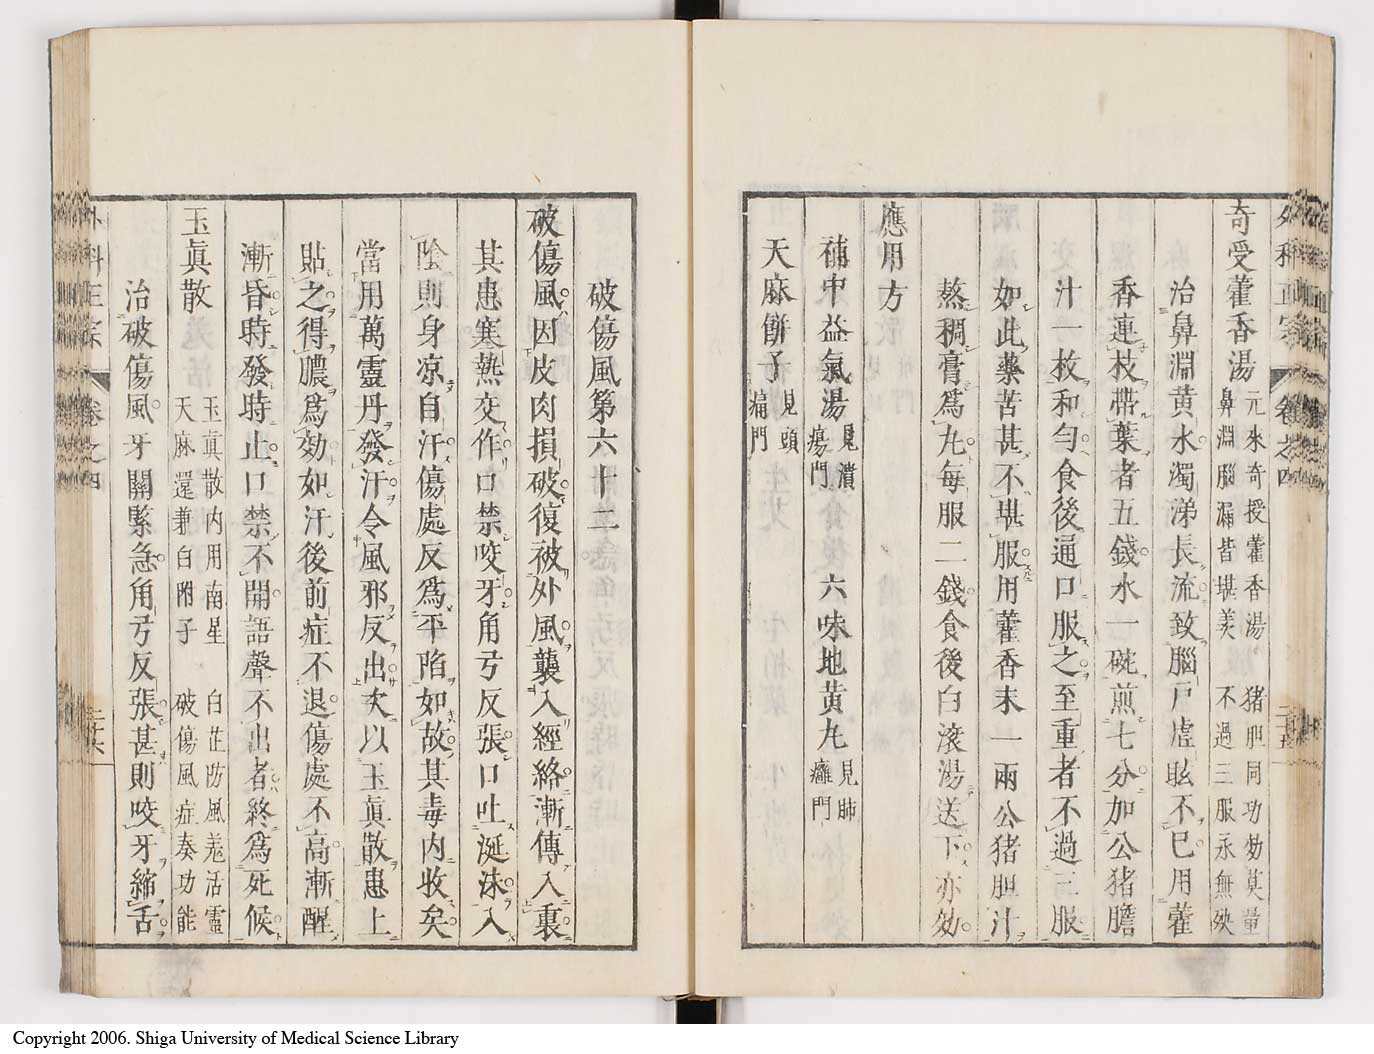 奇受藿香湯 元來奇授藿香湯 鼻淵腦漏皆堪美 猪胆同功効莫量 不過三服永無殃
治鼻淵黃水濁涕長流致腦戸虛眩不已用藿
香連枝帶葉者五錢水一碗煎七分加公猪膽
汁一枚和匀食後通口服之至重者不過三服
如此藥苦甚不堪服用藿香末一兩公猪胆汁
熬稠膏爲丸每服二錢食後白滚湯送下亦効
應用方
補中益氣湯 見潰瘍門 六味地黃丸 見肺癰門
天麻餅子 見頭痛門
破傷風第六十二
破傷風因皮肉損破復被外風襲入經絡漸傳入裏
其患寒熱交作口禁咬牙角弓反張口吐涎沫入
陰則身凉自汗傷處反爲平陷如故其毒内收矣
當用萬靈丹發汗令風邪反出次以玉眞散患上
貼之得膿爲効如汗後前症不退傷處不高漸醒
漸昏時發時止口禁不開語聲不出者終爲死候
玉眞散 玉眞散内用南星 天麻還兼白附子 白芷防風羌活靈 破傷風症奏功能
治破傷風牙關緊急角弓反張甚則咬牙縮舌
外科正宗 卷之四
Copyright 2006. Shiga University of Medical Science Library